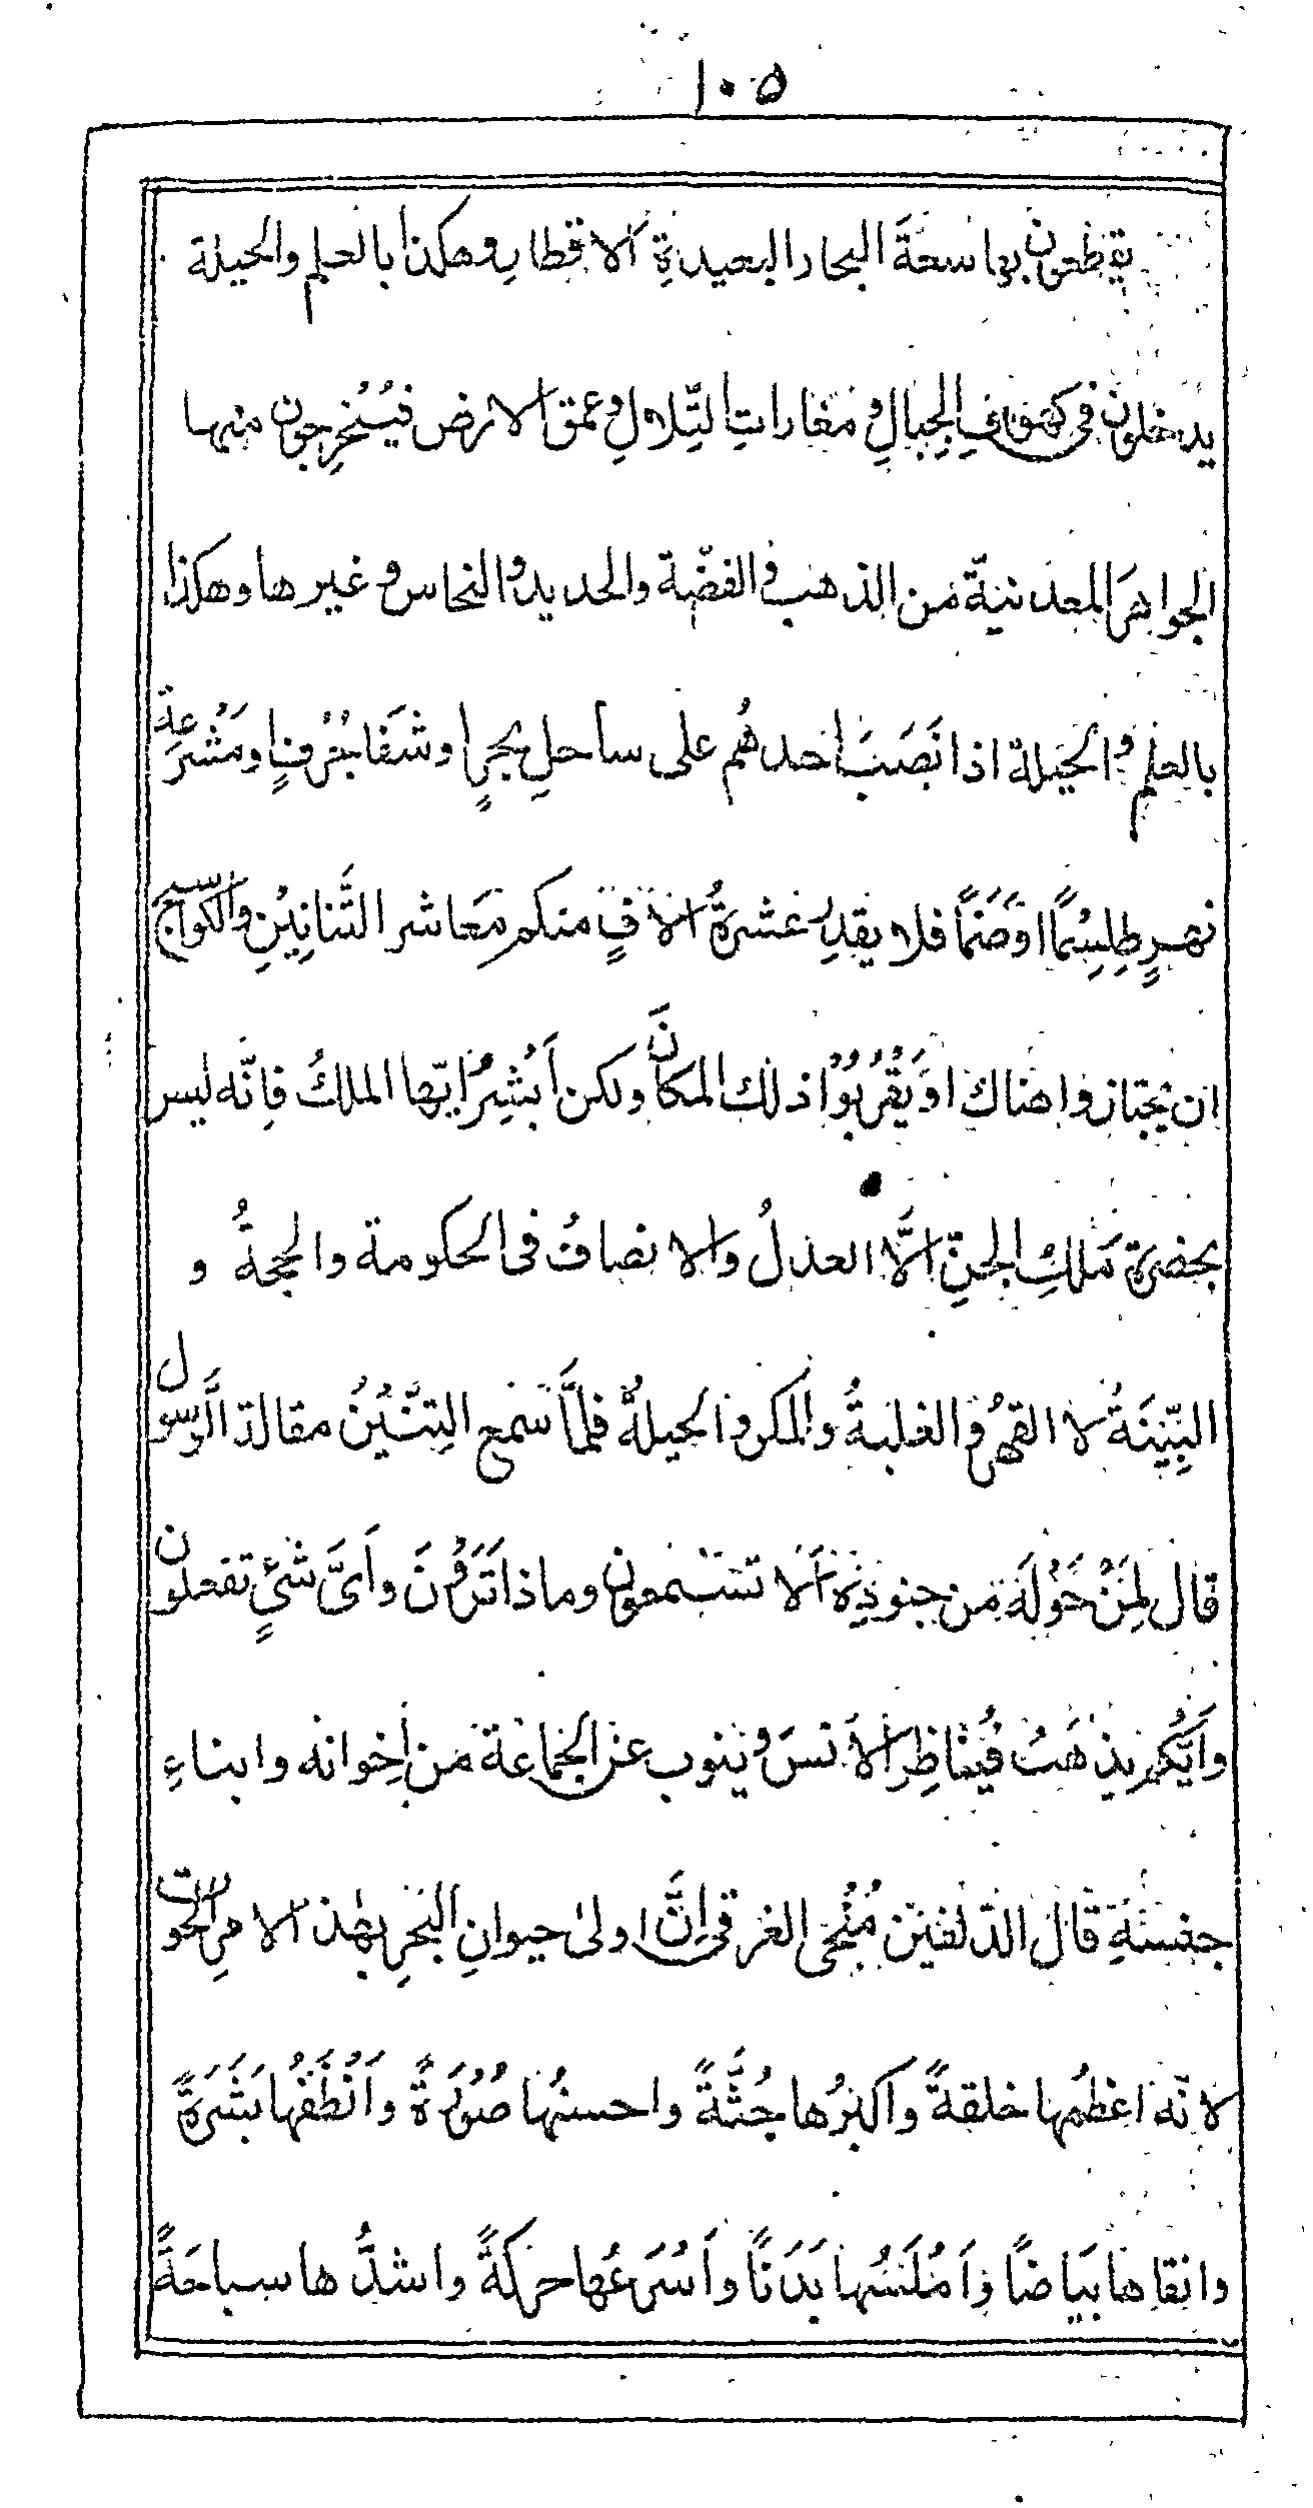 ١٠٥
يقطعون بها سعةَ البحار البعيدةِ الاقطارِ وهكذا بالعلم والحيلة
يدخلون فى كهوفِ الجبالِ و مغاراتِ التِّلالِ وعمق الارض فيُسْتخرِجون منها
الجواهرَ المعدنيّة من الذهب و الفضّة والحديد و النحاس و غيرها وهكذا
بالعلم و الحيلة اذا نَصَبَ احدهُم على ساحلِ بحرٍ او شَفَا جُرُفٍ او مَشْرَعةِ
نهرٍ طِلِسْمًا او صَنَمًا فلا يقدِرُ عشرةُ الآفٍ منكم مَعاشر التَّنانِيْنِ والكواسِجِ
ان يجتازوا هناك او يَقْرُبُوْا ذلك المكانَ ولكن اَبْشِرْ ايّها الملكُ فاِنّه ليس
بحضرة مَلكِ الجنِّ الَّا العدلُ والانصافُ فى الحكومة والحجةُ و
البيِّنَةُ لا القهرُ و الغلبةُ والمكر و الحيلةُ فلمَّا سَمع التِنِّيْنُ مقالة الرَّسول
قال لِمَنْ حَوْلَه من جنودِه اَلا تسْمعون وماذا تَرَوْنَ واَىَّ شئٍ تفعلون
واَيُّكم يذهَبُ فيُناظِر الاَنسَ و ينوب عن الجماعة من اِخوانه وابناءِ
جنسهِ قال الدّلفين مُنْجى الغرقى اِنَّ اولىٰ حيوانِ البحرِ بهٰذ الامرِ الحوت
لانّه اعظمُها خلقةً واكبرُها جُثَّةً واحسنُها صُوْرَةً واَنْظَفُها بَشَرَةً
وانقاها بَيَاضًا واَمْلَسُها بَدَنًا واَسْرَعُها حركةً واشدُّها سباحَةً